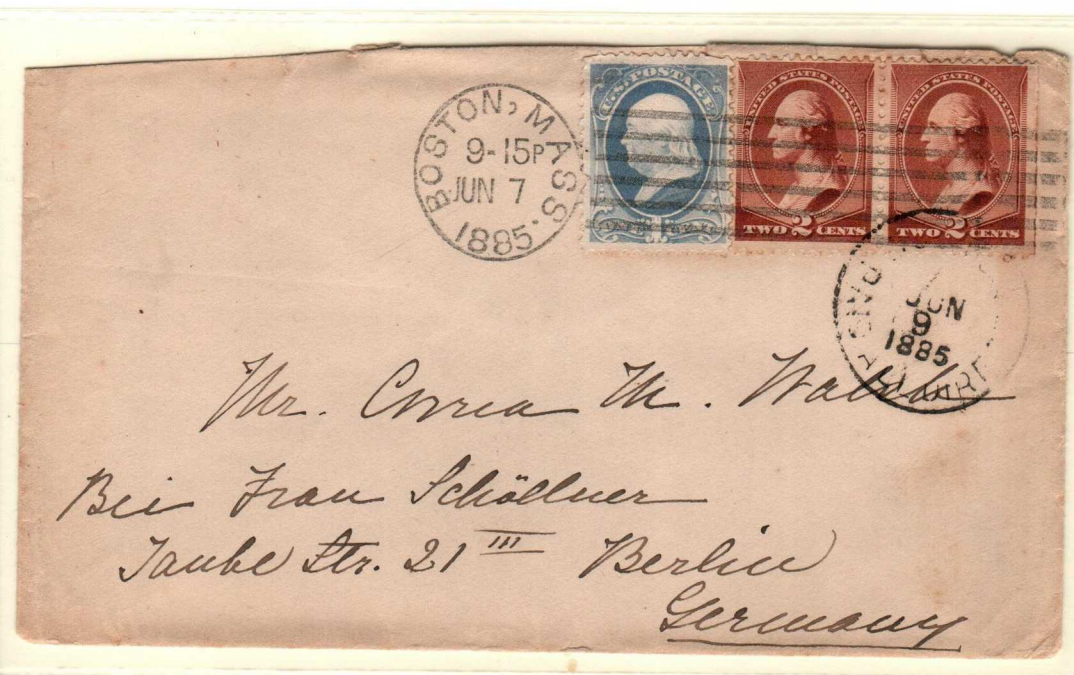 BOSTON, MASS.
9-15P
JUN 7
1885
U.S. POSTAGE
UNITED STATES POSTAGE
TWO 2 CENTS
UNITED STATES POSTAGE
TWO 2 CENTS
JUN
9
1885
Mr. Correa M.
Bei Frau Schöllner
Taube Str. 21 III Berlin
Germany